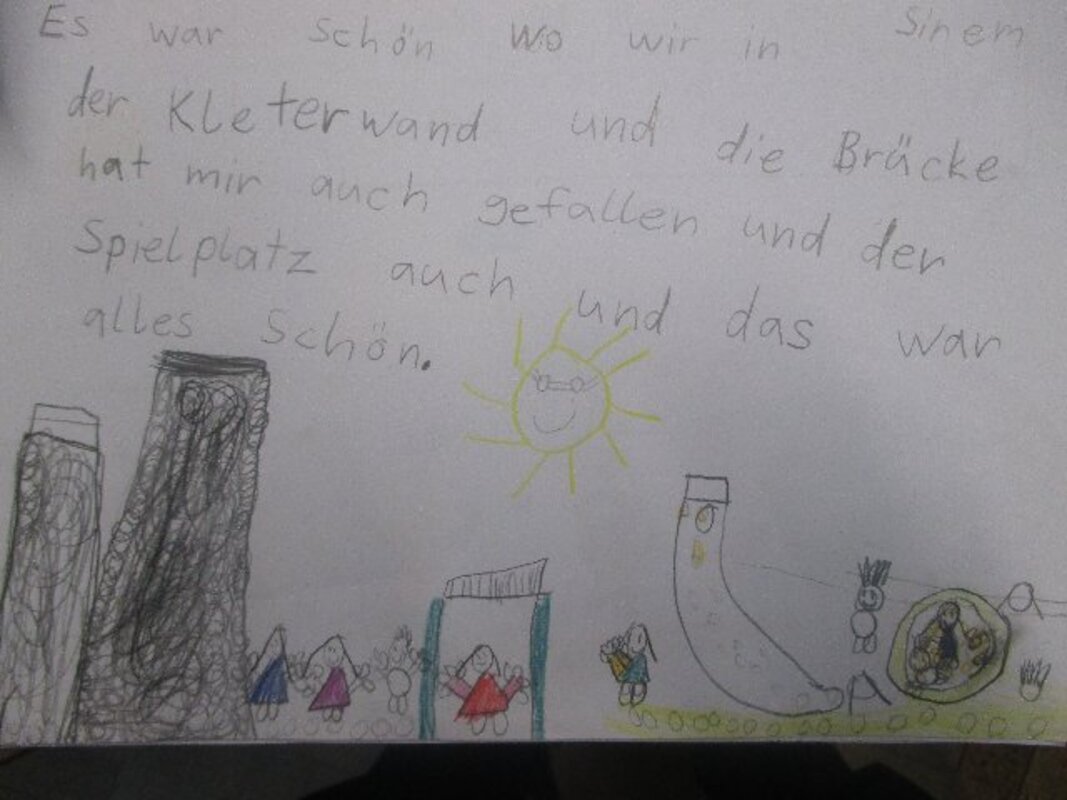 Es war schön wo wir in Sinem
der Kleterwand und die Bräcke
hat mir auch gefallen und der
Spielplatz auch und das war
alles Schön.